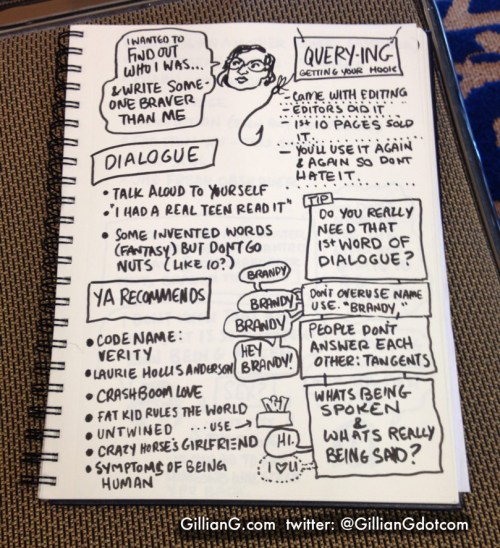 I WANTED TO
FIND OUT
WHO I WAS...
& WRITE SOME-
ONE BRAVER
THAN ME
QUERY-ING
GETTING YOUR HOOK
- CAME WITH EDITING
- EDITORS DID IT
- 1st 10 PAGES SOLD
IT.
- YOU'LL USE IT AGAIN
& AGAIN SO DONT
HATE IT.
DIALOGUE
• TALK ALOUD TO YOURSELF
• "I HAD A REAL TEEN READ IT"
• SOME INVENTED WORDS
(FANTASY) BUT DON'T GO
NUTS (LIKE 10?)
TIP
DO YOU REALLY
NEED THAT
1st WORD OF
DIALOGUE?
BRANDY
BRANDY
BRANDY
HEY
BRANDY!
DON'T OVERUSE NAME
USE. "BRANDY,"
PEOPLE DON'T
ANSWER EACH
OTHER: TANGENTS
YA RECOMMENDS
• CODE NAME:
VERITY
• LAURIE HOLLIS ANDERSON
• CRASHBOOM LOVE
• FAT KID RULES THE WORLD
• UNTWINED ...USE →
• CRAZY HORSE'S GIRLFRIEND
• SYMPTOMS OF BEING
HUMAN
HI.
I ♡ U
WHATS BEING
SPOKEN
&
WHATS REALLY
BEING SAID?
GillianG.com twitter: @GillianGdotcom